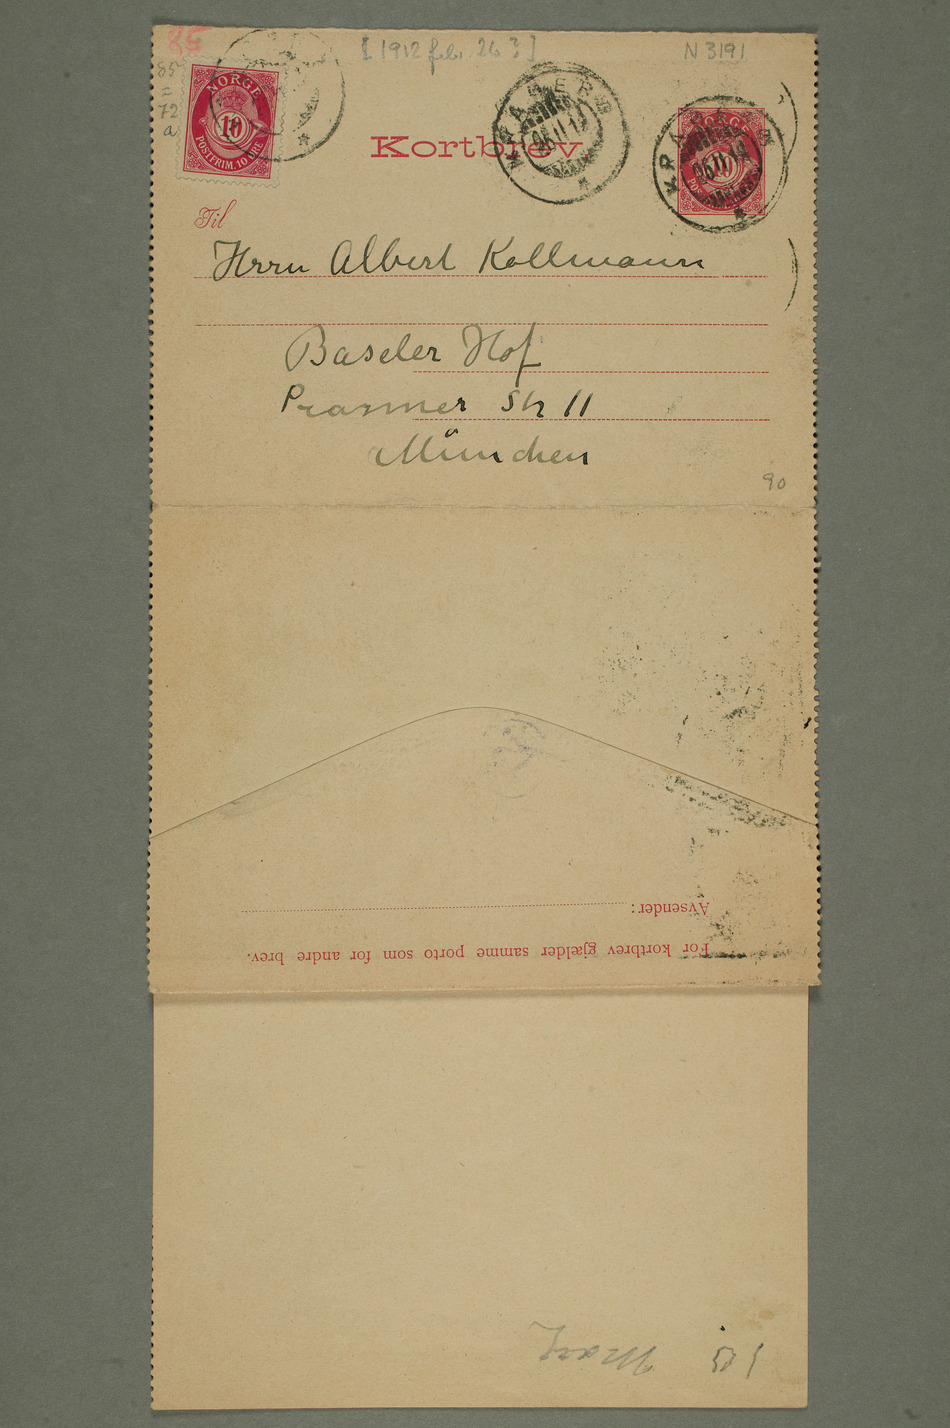 85
[1912 febr. 26?]
N 3191
85
=
72
a
NORGE
10
POSTFRIM. 10 ØRE
Kortbrev
KRAGERØ
26 II 12
NORGE
10
KRAGERØ
26 II 12
Til
Herrn Albert Kollmann
Baseler Hof
Pranner Str 11
München
90
Avsender:
For kortbrev gjælder samme porto som for andre brev.